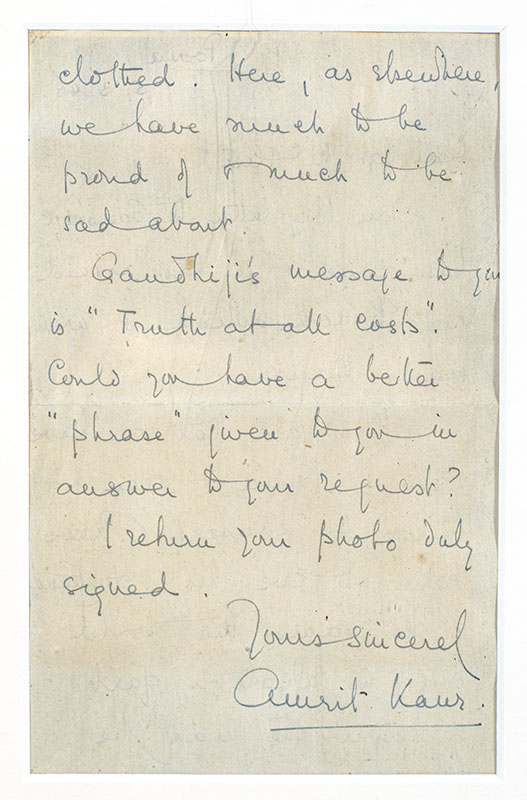 clothed. Here, as elsewhere,
we have much to be
proud of & much to be
sad about.
Gandhiji's message to you
is "Truth at all costs".
Could you have a better
"phrase" given to you in
answer to your request?
I return your photo duly
signed.
Yours sincerely
Amrit Kaur.